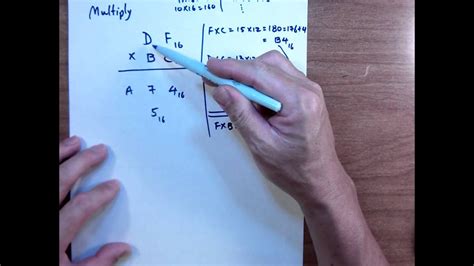 Multiply
10x16=160
D F₁₆
x B C
A 7 4₁₆
5₁₆
FxC=15x12=180=176+4
= B4₁₆
FxB